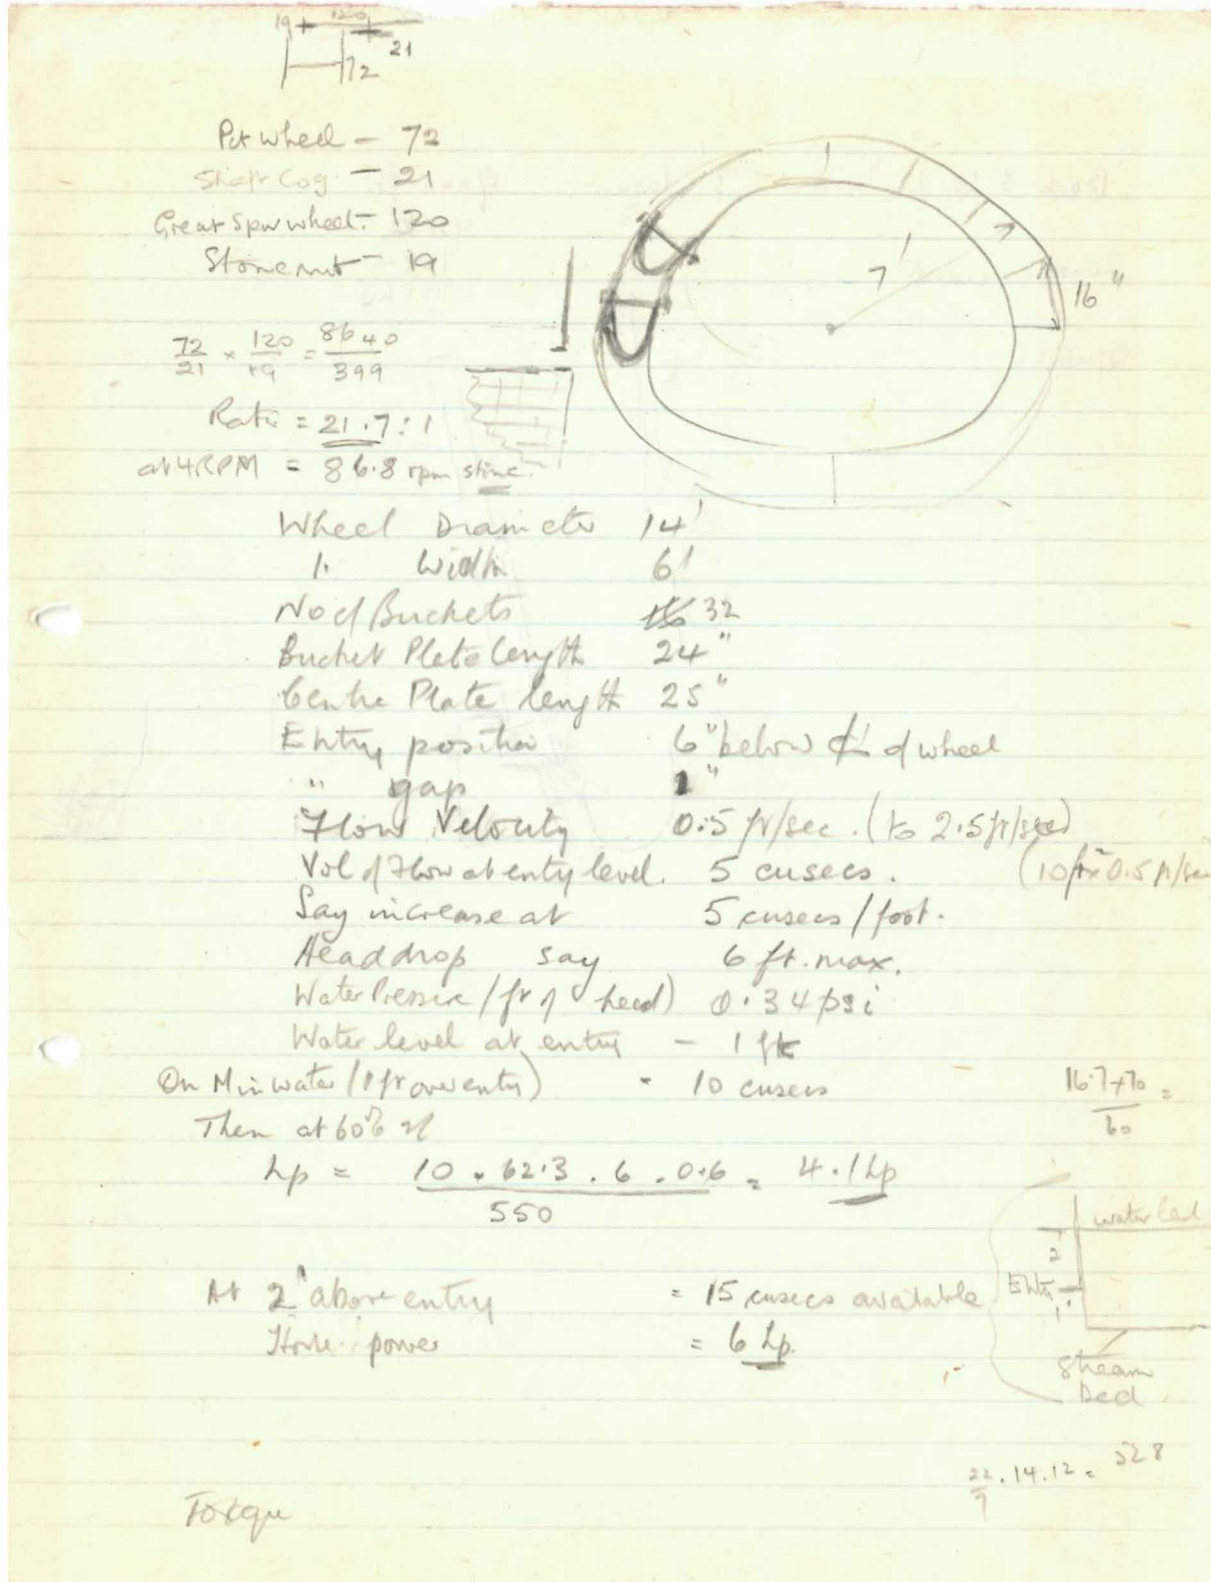 19 120
21
72
Pit wheel - 72
Shaft Cog. - 21
Great Spur wheel - 120
Stone nut - 19
7'
16"
72/21 × 120/19 = 8640/399
Ratio = 21.7 : 1
at 4 RPM = 86.8 rpm stone.
Wheel Diameter 14'
" Width 6'
No of Buckets 16 32
Bucket Plate length 24"
Centre Plate length 25"
Entry position 6" below ℄ of wheel
" gap 1"
Flow Velocity 0.5 ft/sec. (to 2.5 ft/sec)
Vol of Flow at entry level. 5 cusecs. (10 ft² × 0.5 ft/sec
Say increase at 5 cusecs / foot.
Head drop say 6 ft. max.
Water Pressure / ft of head) 0.34 psi
Water level at entry - 1 ft
On Min water (1 ft over entry) - 10 cusecs
16.7+70 =
60
Then at 60%
hp = 10 . 62.3 . 6 . 0.6 = 4.1 hp
550
water level
2'
Entry
1'
stream
bed
At 2' above entry = 15 cusecs available
Horse power = 6 hp.
22/7 . 14 . 12 = 528
Torque